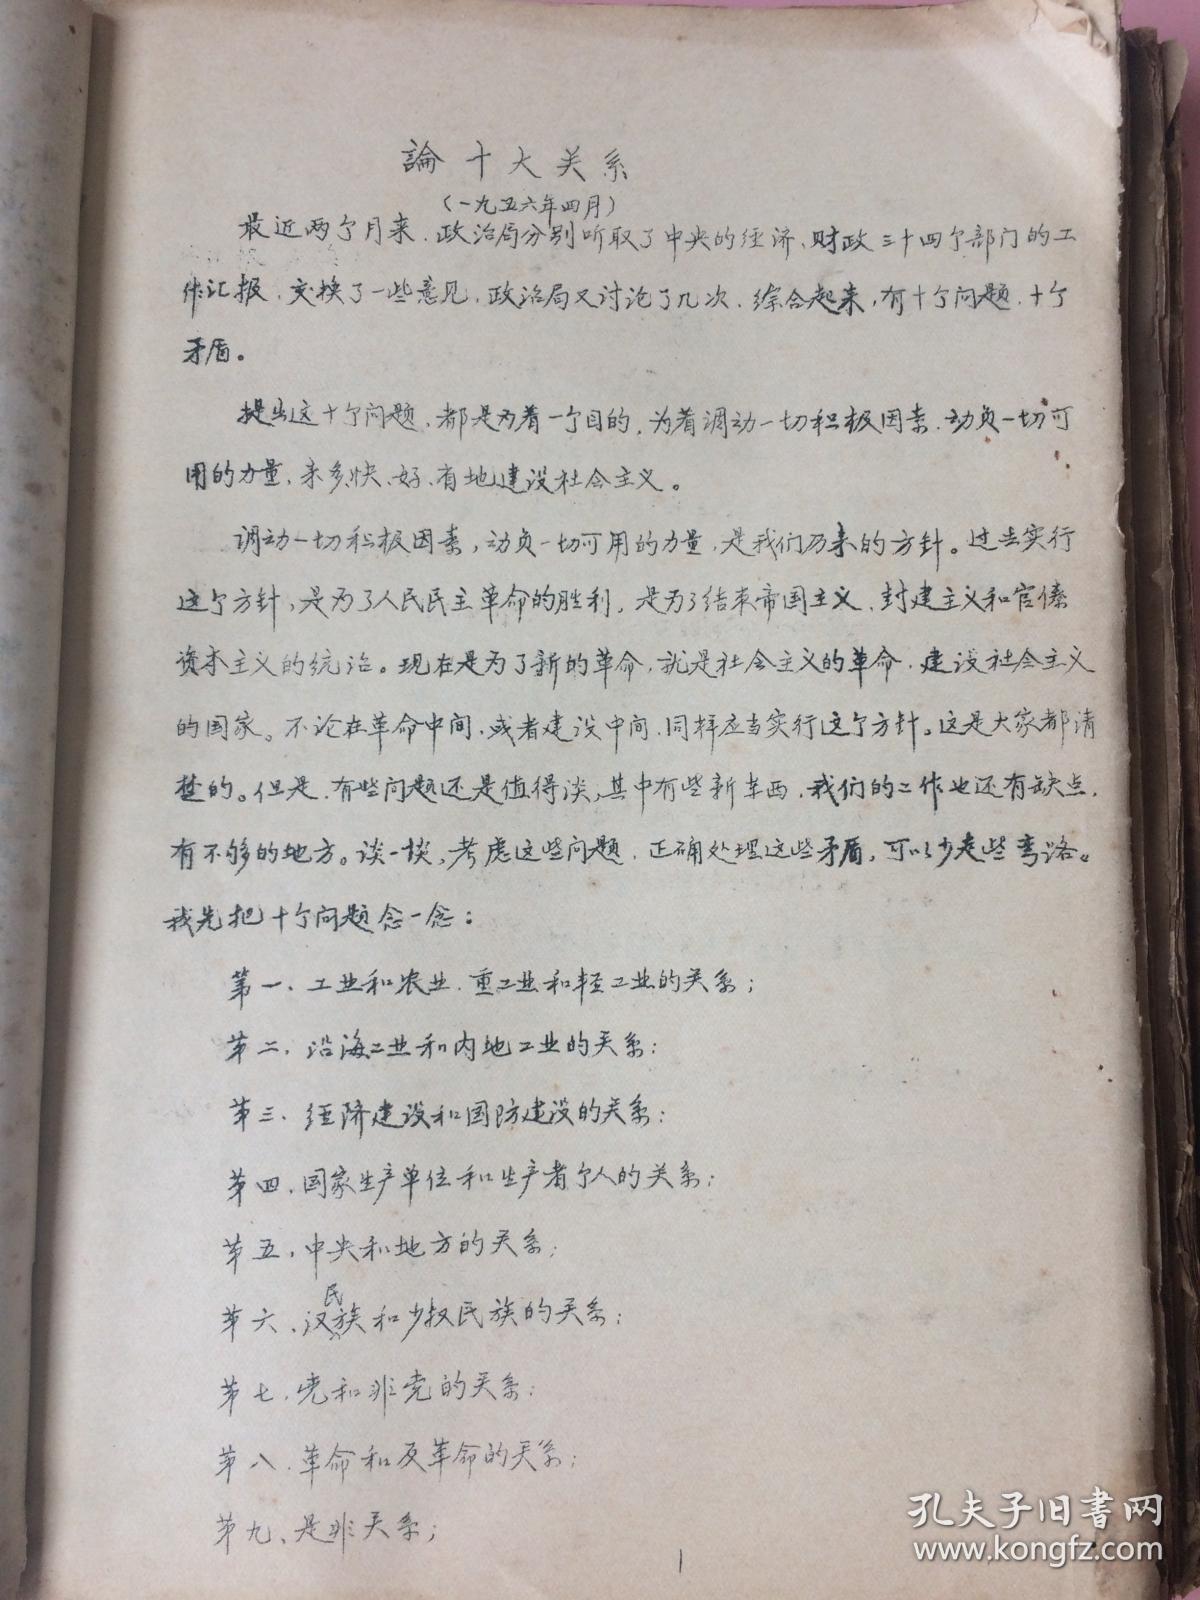 論十大关系
（一九五六年四月）
最近两个月来，政治局分别听取了中央的经济、财政三十四个部门的工
作汇报，交换了一些意见，政治局又讨论了几次，综合起来，有十个问题，十个
矛盾。
提出这十个问题，都是为着一个目的，为着调动一切积极因素，动员一切可
用的力量，来多、快、好、省地建设社会主义。
调动一切积极因素，动员一切可用的力量，是我们历来的方针。过去实行
这个方针，是为了人民民主革命的胜利，是为了结束帝国主义、封建主义和官僚
资本主义的统治。现在是为了新的革命，就是社会主义的革命，建设社会主义
的国家。不论在革命中间，或者建设中间，同样应当实行这个方针。这是大家都清
楚的。但是，有些问题还是值得谈，其中有些新东西，我们的工作也还有缺点，
有不够的地方。谈一谈，考虑这些问题，正确处理这些矛盾，可以少走些弯路。
我先把十个问题念一念：
第一、工业和农业，重工业和轻工业的关系；
第二、沿海工业和内地工业的关系；
第三、经济建设和国防建设的关系；
第四、国家生产单位和生产者个人的关系；
第五、中央和地方的关系；
第六、汉民族和少数民族的关系；
第七、党和非党的关系；
第八、革命和反革命的关系；
第九、是非关系；
1
孔夫子旧書网
www.kongfz.com